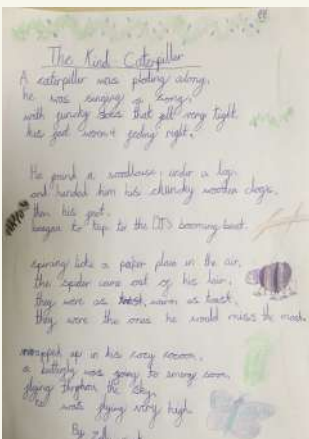 The Kind Caterpillar
A caterpillar was ploding along,
he was singing a song,
with funky shoes that felt very tight
his feet weren't feeling right.
He found a woodlouse under a log
and handed him his chunky wooden clogs,
then his feet,
began to tap to the DJS booming beat.
spining like a paper plain in the air,
the spider came out of his lair,
they were as warm as toast,
they were the ones he would miss the most.
wrapped up in his cosy cocoon,
a butterfly was going to emerg soon,
flying throghout the sky,
he was flying very high.
By